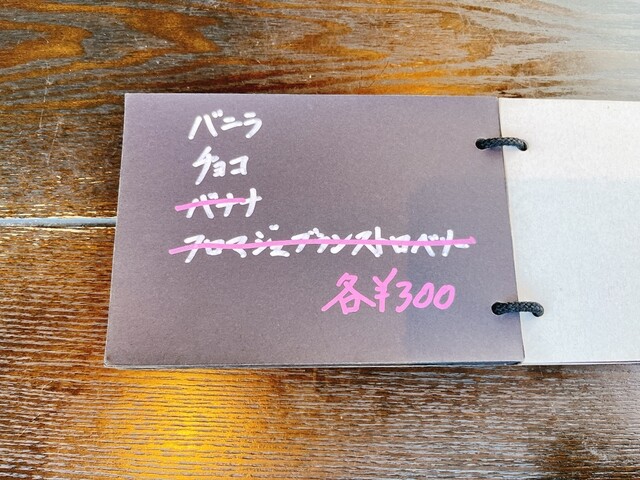 バニラ
チョコ
バナナ
フロマジェブランストロベリー
各¥300